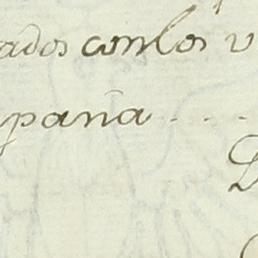 ados con los v
pana . . . .
D